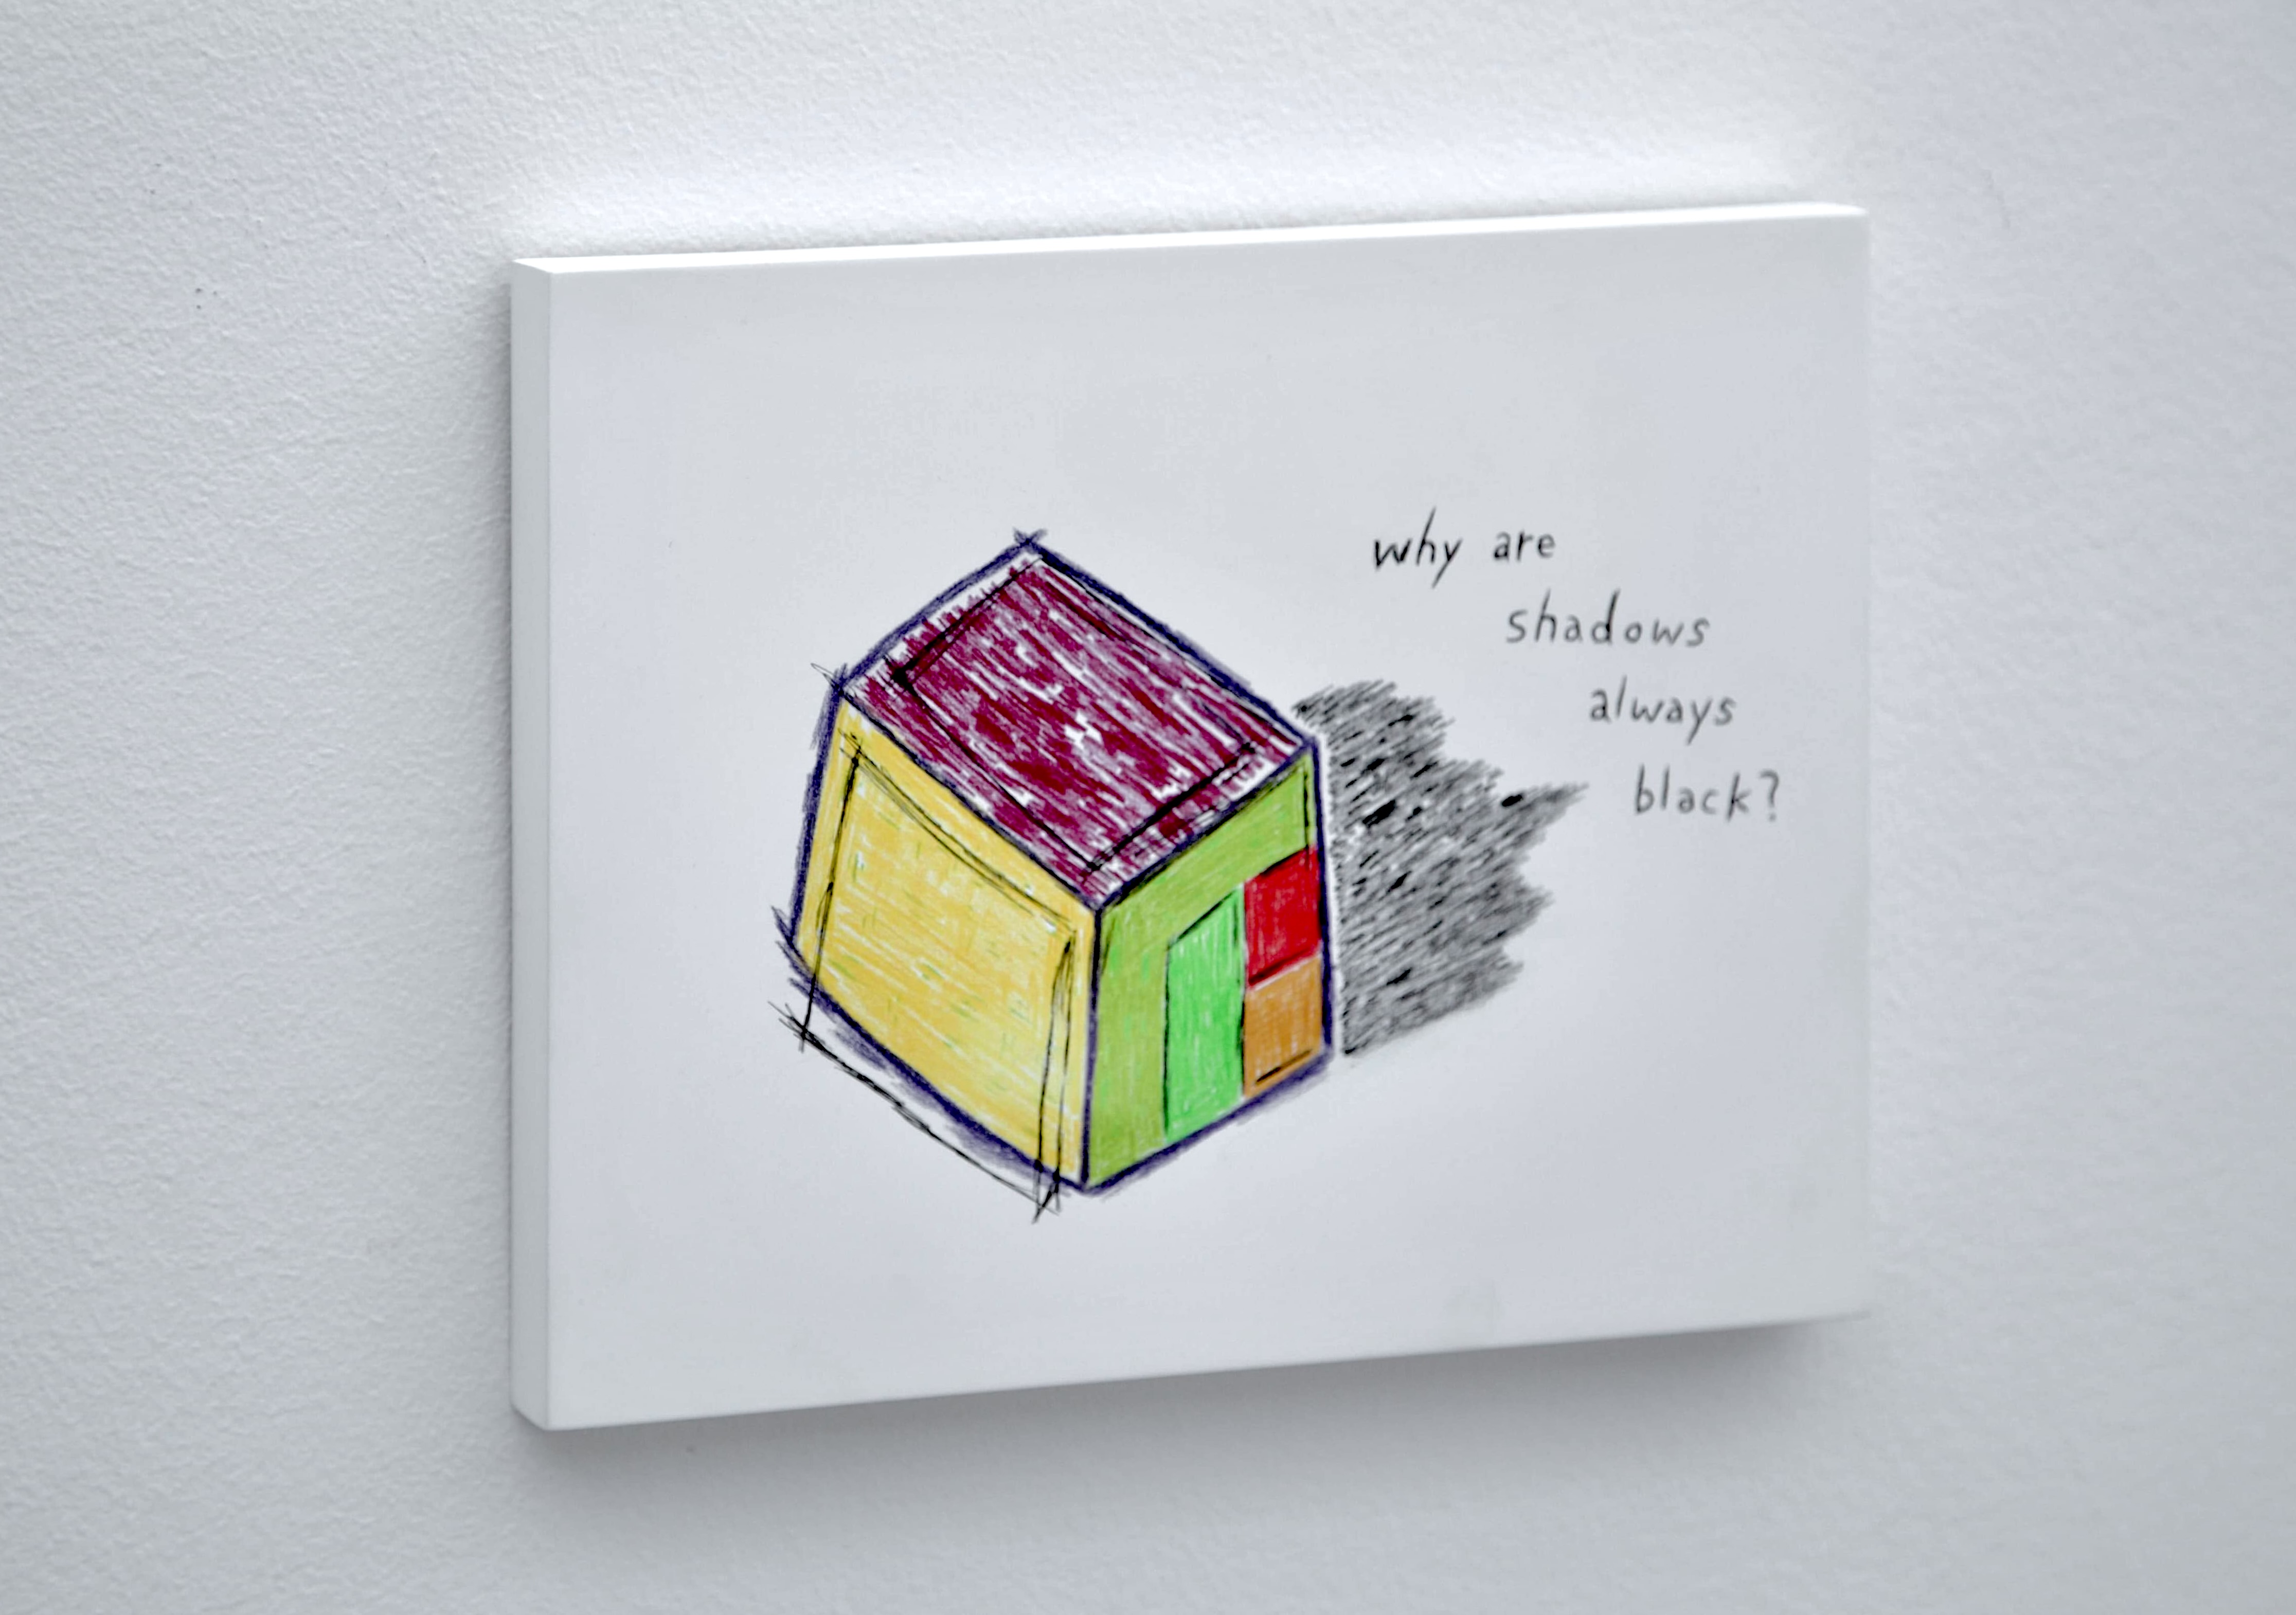 why are
shadows
always
black?